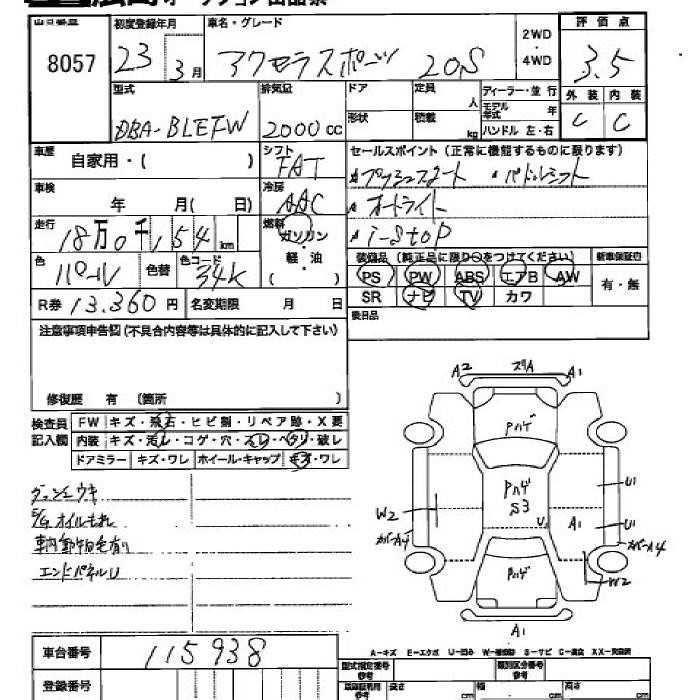 出品番号 初度登録年月 車名・グレード 2WD・4WD 評価点
8057 23 3月 アクセラスポーツ 20S 3.5
型式 排気量 ドア 定員 人 ディーラー・並行 外装 内装
DBA-BLEFW 2000cc 形状 積載 kg モデル年式 年 ハンドル 左・右 C C
車歴 自家用・( ) シフト FAT セールスポイント(正常に機能するものに限ります)
プッシュスタート ・パドルシフト
車検 年 月( 日) 冷房 AAC オートライト
走行 18万0千154km 燃料 ガソリン・軽・油( ) i-stop
色 パール 色替 色コード 34K 装備品(純正品に限り○をつけてください) 新車保証書
PS PW ABS エアB AW 有・無
R券 13.360円 名変期限 月 日 SR ナビ TV カワ
注意事項申告欄(不具合内容等は具体的に記入して下さい) 後日品
修復歴 有 (箇所 )
検査員記入欄 FW キズ・飛石・ヒビ割・リペア跡・X要
内装 キズ・汚レ・コゲ・穴・スレ・ヘタリ・破レ
ドアミラー キズ・ワレ ホイール・キャップ キズ・ワレ
A2 スリA A1
Pハゲ
ダッシュウキ
E/Gオイルもれ
車内動物毛有り
エンドパネルU
Pハゲ
S3
U1
W2
カバーA4
A1
U1
U1
カバーA4
Pハゲ
W2
A1
A-キズ E-エクボ U-凹み W-補修跡 S-サビ C-腐食 XX-交換済
車台番号 115938 型式指定番号 参考 類別区分番号 参考
登録番号 長さ cm 幅 cm 高さ cm